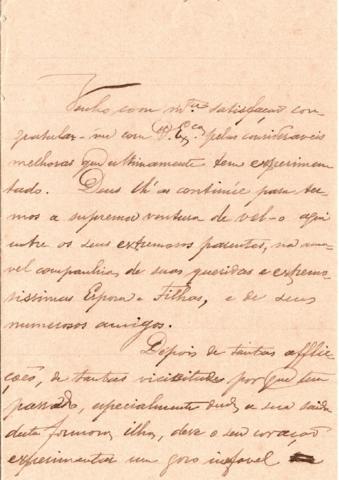 Venho com m.ta satisfação con-
gratular-me com V. Ex.cia pelas consideraveis
melhoras que ultimamente tem experimen-
tado. Deus lh'as continúe para ter-
mos a suprema ventura de vel-o aqui
entre os seus extremosos parentes, na ama-
vel companhia de suas queridas e extremo-
sissimas Esposa e Filhas, e de seus
numerosos amigos.
Depois de tantas afflic-
ções, de tantas vicissitudes por que tem
passado, especialmente desde a sua saida
desta formosa ilha, deve o seu coração
experimentar um goso ineffavel